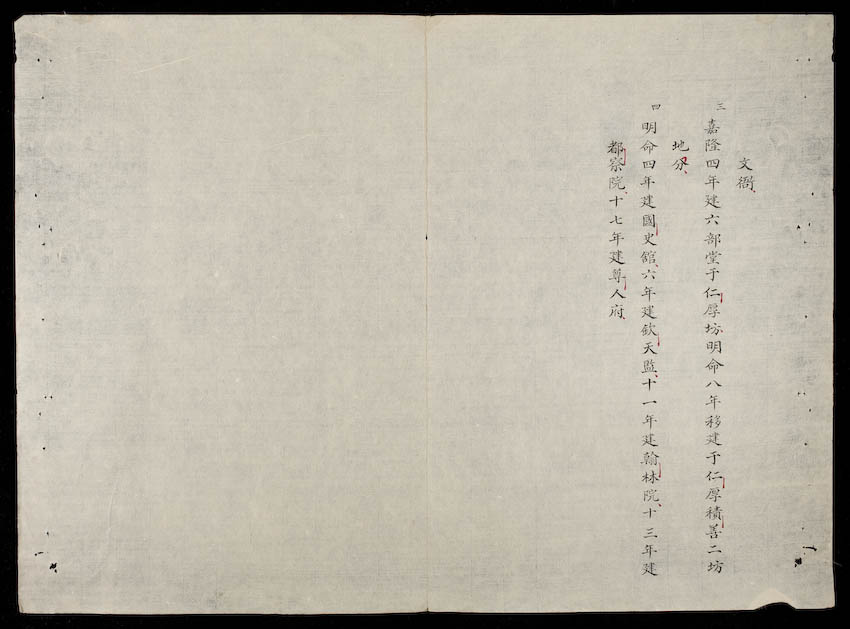 文衙
三 嘉隆四年建六部堂于仁厚坊明命八年移建于仁厚積善二坊
地分
四 明命四年建國史館六年建欽天監十一年建翰林院十三年建
都察院十七年建尊人府